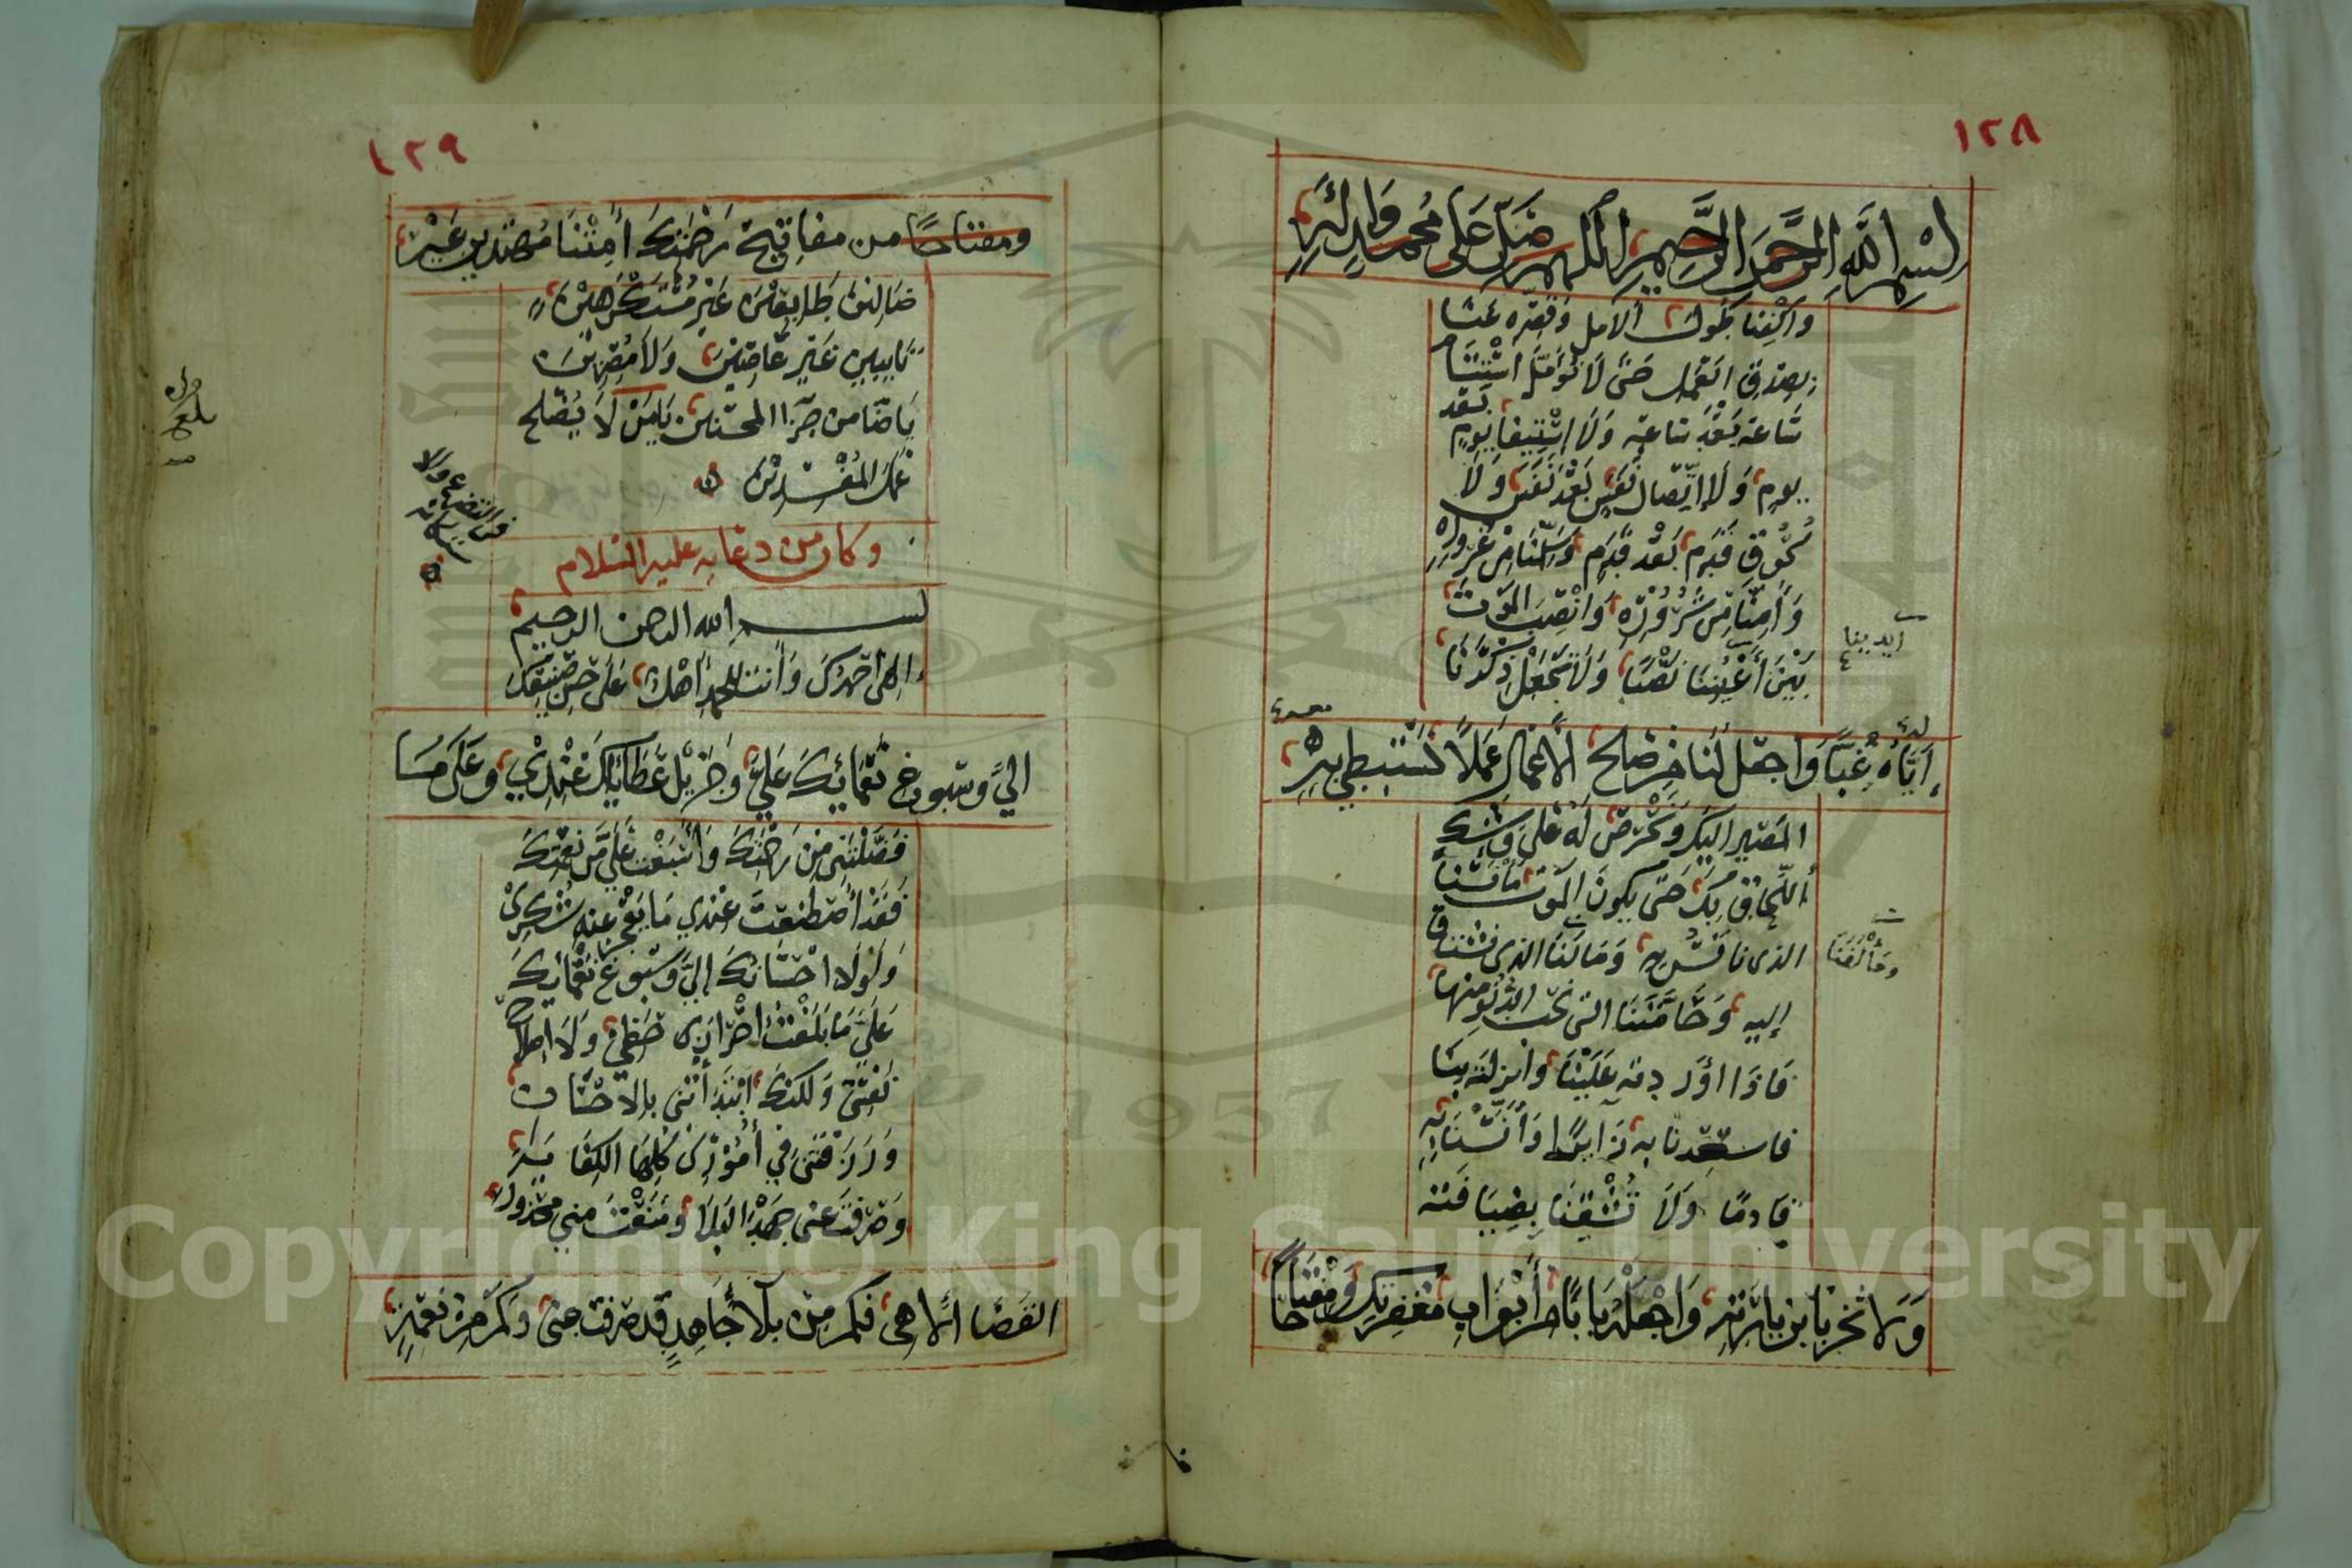 ١٢٨
بسم الله الرحمن الرحيم اللهم صل على محمد وآله
واكفنا طول الأمل وقصره عنا
بصدق العمل حتى لا نؤمل استتمام
ساعة بعد ساعة ولا استيفا يوم بعد
يوم ولا اتصال نفس بعد نفس ولا
لحوق قدم بعد قدم وسلمنا من غروره
وأمنا من شروره وانصب الموت
بين أعيننا نصبا ولا تجعل ذكرنا
أيدينا
إياه غبا واجعل لنا من صالح الأعمال عملا نستبطي به
المصير إليك ونحرص له على وشك
اللحاق بك حتى يكون الموت مأنسنا
الذي نأنس به ومألفنا الذي نشتاق
ومألفنا
إليه وحامتنا التي نحب الدنو منها
فاذا أوردته علينا وأنزلته بنا
فاسعدنا به زائرا وآنسنا به
قادما ولا تشقنا بضيافته
ولا تخزنا بزيارته واجعله بابا من أبواب مغفرتك ومفتاحا
١٢٩
ومفتاحا من مفاتيح رحمتك أمتنا مهتدين غير
ضالين طايعين غير مستكرهين
تايبين غير عاصين ولا مصرين
يا ضامن جزا المحسنين يا من لا يصلح
عمل المفسدين
بلغ
وكان من دعايه عليه السلام
بسم الله الرحمن الرحيم
إلهي أحمدك وأنت للحمد أهل على حسن صنيعك
إلي وسبوغ نعمائك علي وجزيل عطائك عندي وعلى ما
فضلتني من رحمتك وأسبغت علي من نعمتك
فقد اصطنعت عندي ما يعجز عنه شكري
ولولا احسانك إلي وسبوغ نعمائك
علي ما بلغت احراز حظي ولا اصلاح
نفسي ولكنك ابتدأتني بالاحسان
ورزقتني في أموري كلها الكفاية
وصرفت عني جهد البلا ومنعت مني محذور
القضا الاهي فكم من بلا جاهد قد صرفت عني وكم من نعمة